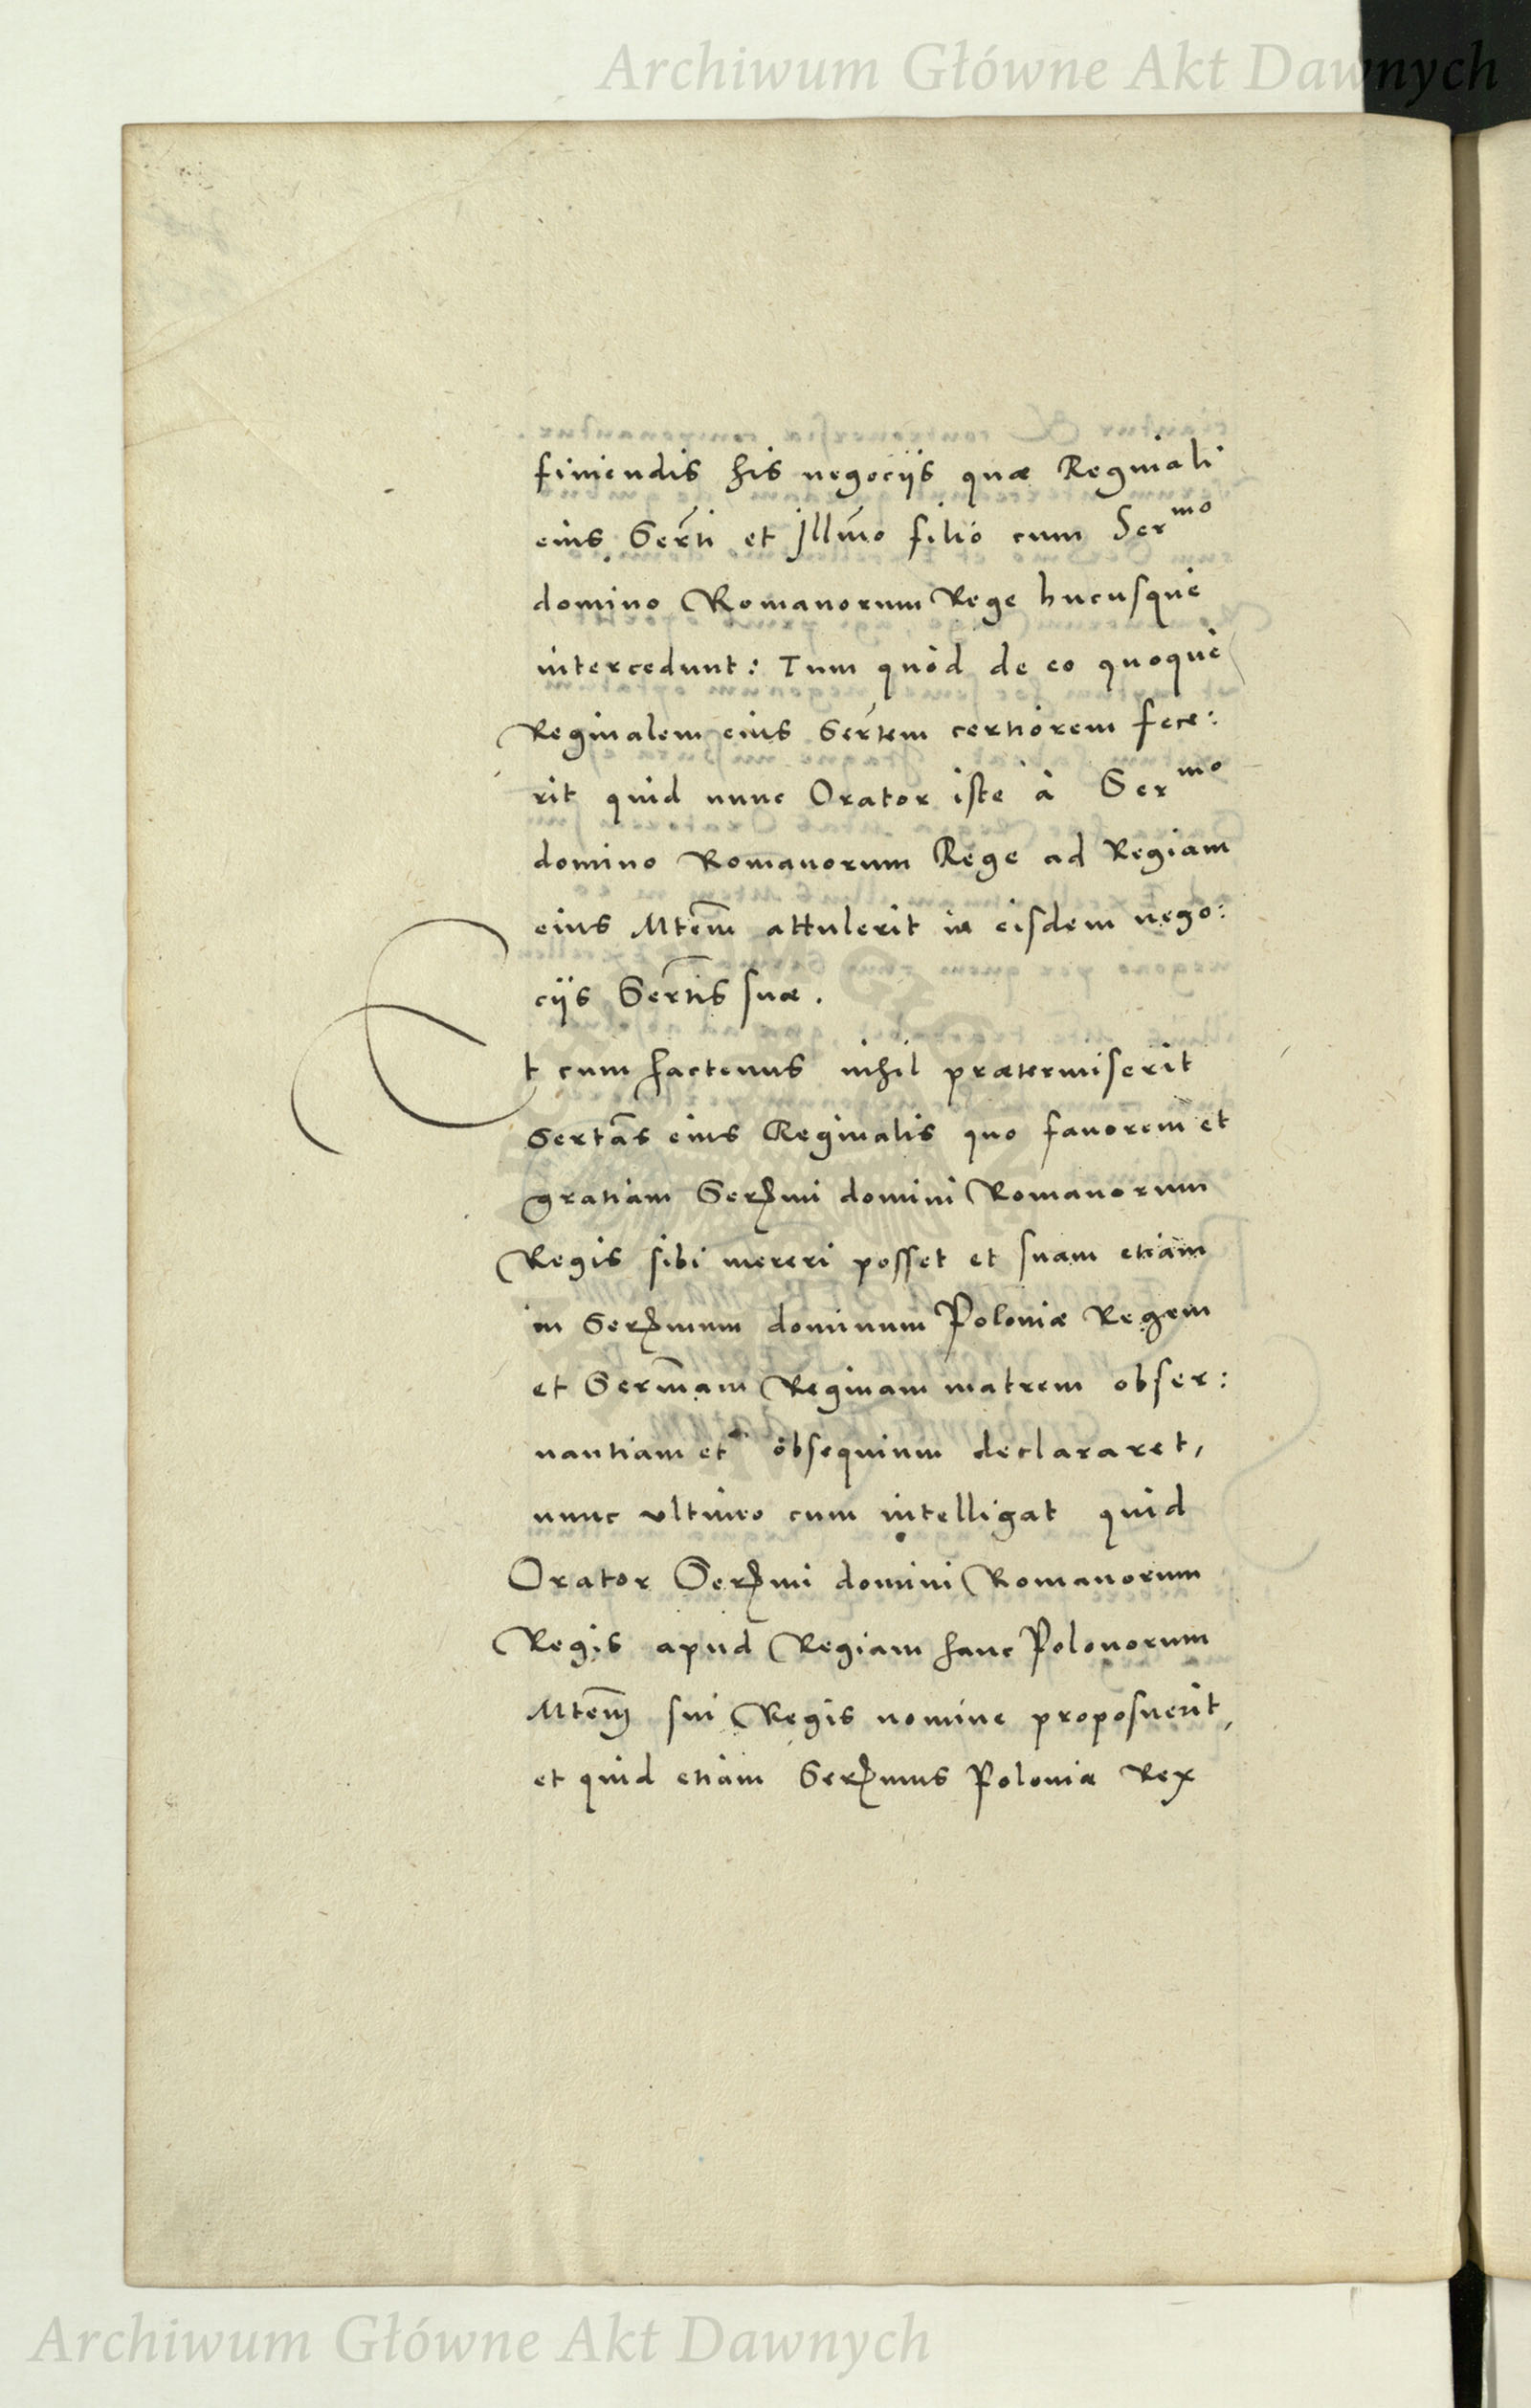 Archiwum Główne Akt Dawnych
finiendis his negocijs quæ Reginali
eius Serti et Jllmo filio cum Sermo
domino Romanorum Rege hucusque
intercedunt: Tum quòd de eo quoque
Reginalem eius Sertem certiorem fece:
rit quid nunc Orator iste à Sermo
domino Romanorum Rege ad Regiam
eius Mtem attulerit in eisdem nego:
cijs Sertis suæ.
Et cum hactenus nihil prætermiserit
Sertas eius Reginalis quo fauorem et
gratiam Sermi domini Romanorum
Regis sibi mereri posset et suam etiam
in Sermum dominum Poloniæ Regem
et Sermam Reginam matrem obser:
uantiam et obsequium declararet,
nunc vltimo cum intelligat quid
Orator Sermi domini Romanorum
Regis apud Regiam hanc Polonorum
Mtem sui Regis nomine proposuerit,
et quid etiam Sermus Poloniæ Rex
Archiwum Główne Akt Dawnych